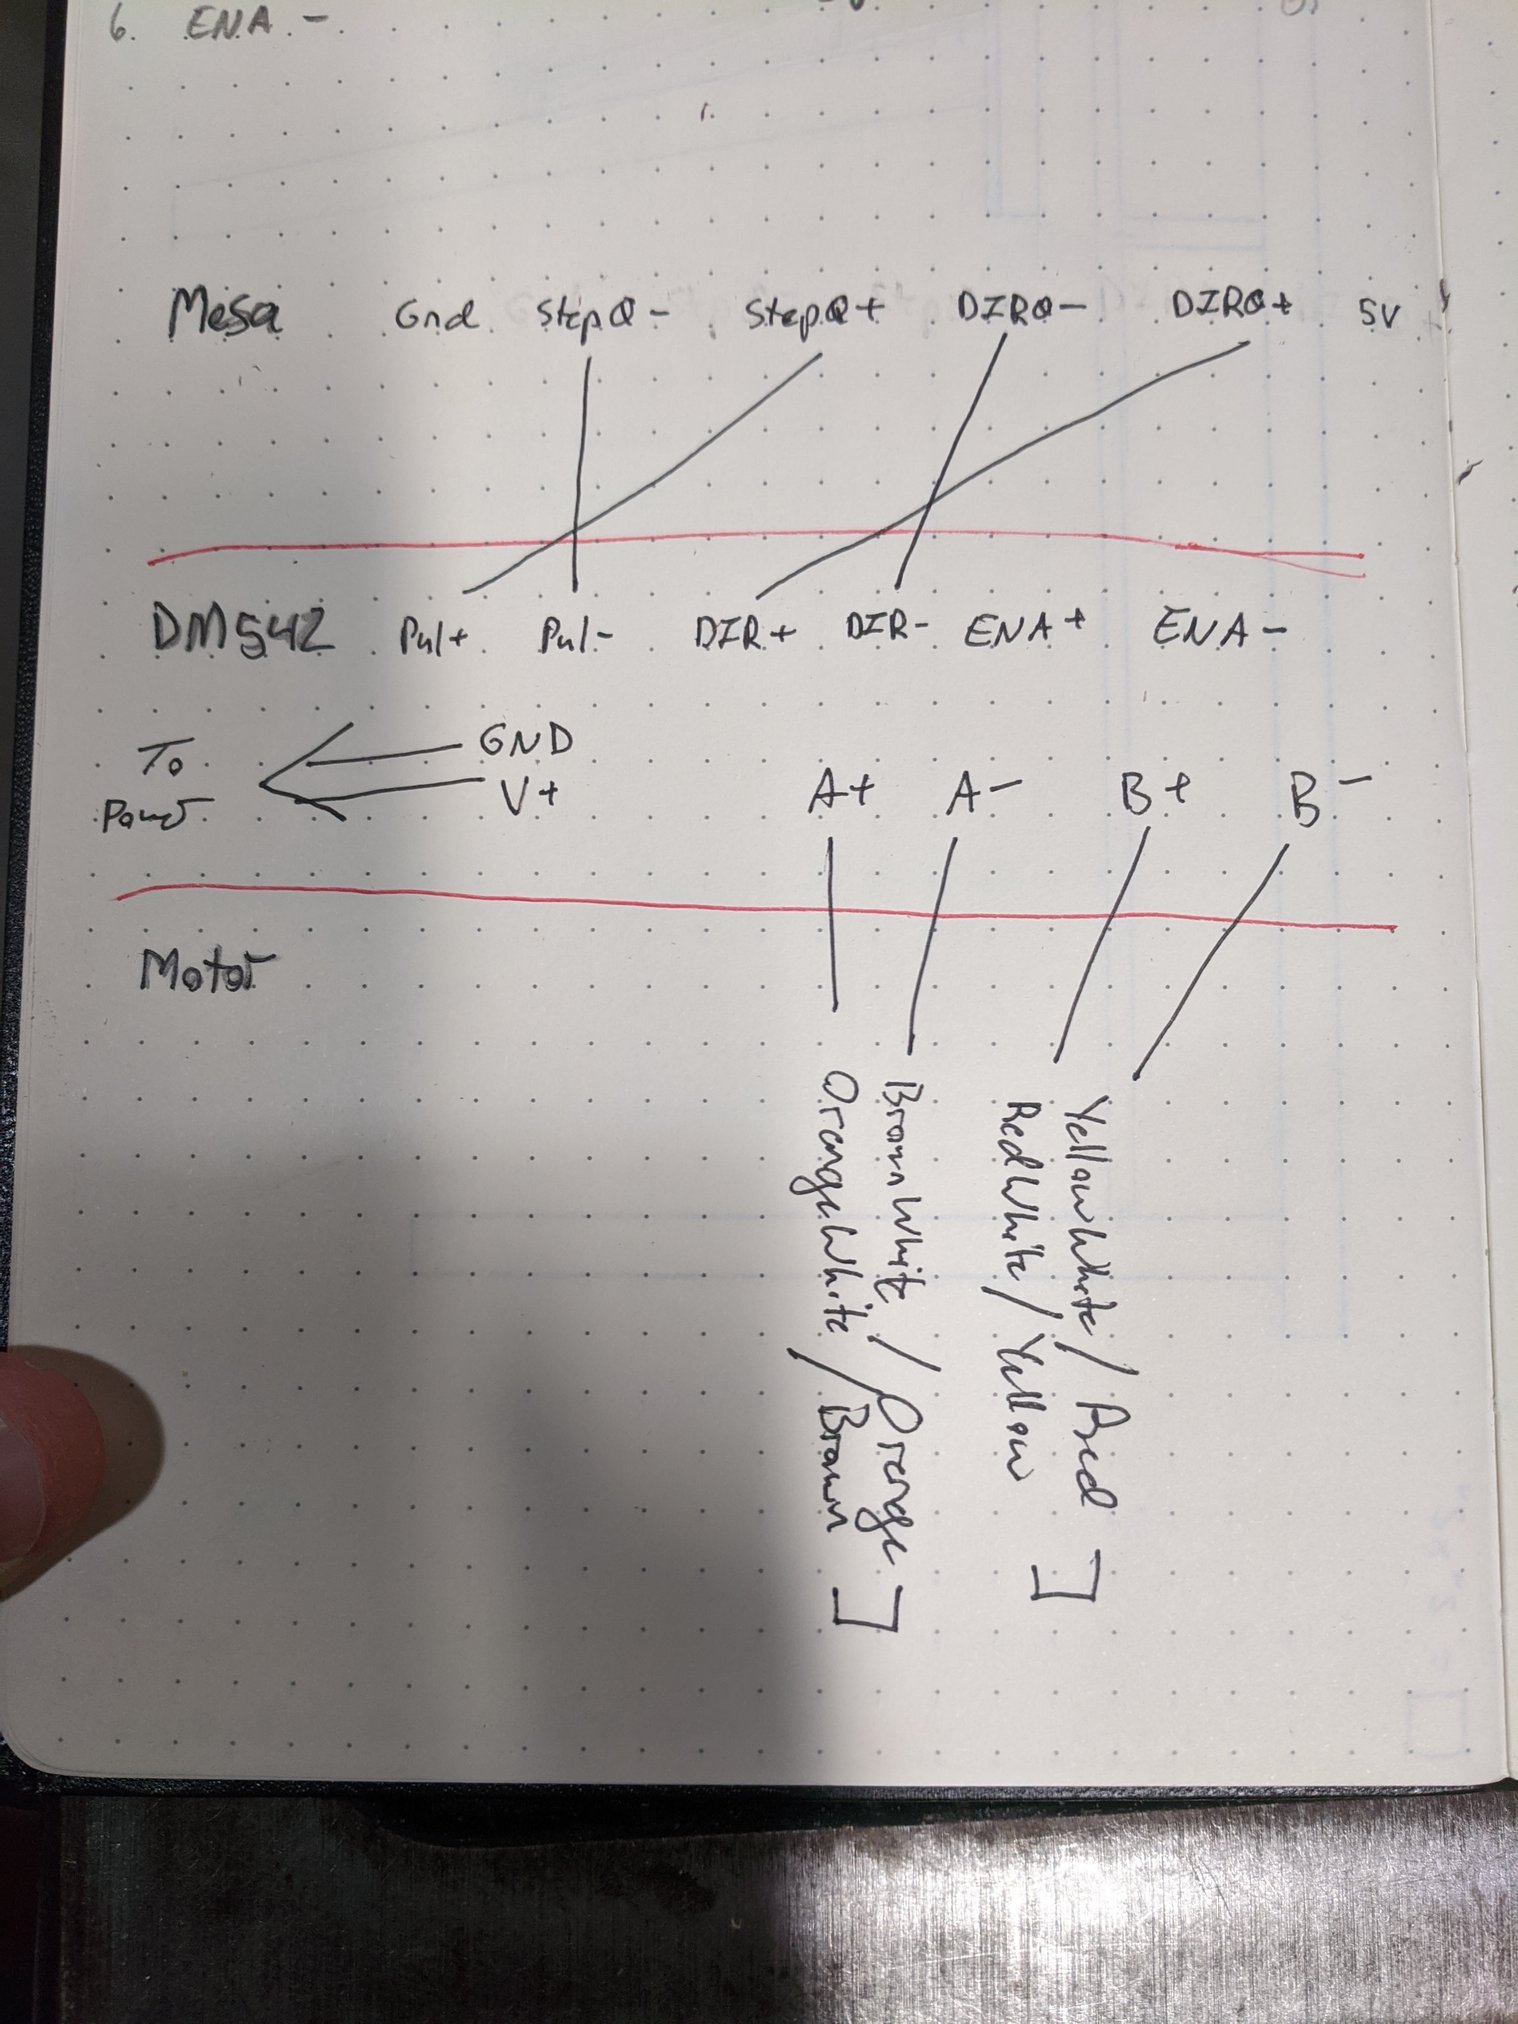 6. ENA -
Mesa Gnd Step0- Step0+ DIR0- DIR0+ 5V
DM542 Pul+ Pul- DIR+ DIR- ENA+ ENA-
To
Power
GND
V+
A+ A- B+ B-
Motor
OrangeWhite / Brown
BrownWhite / Orange
RedWhite / Yellow
YellowWhite / Red